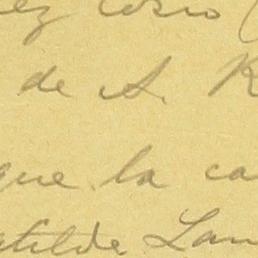 ez Cosio (
de A. R
que la ca
atilde Lan